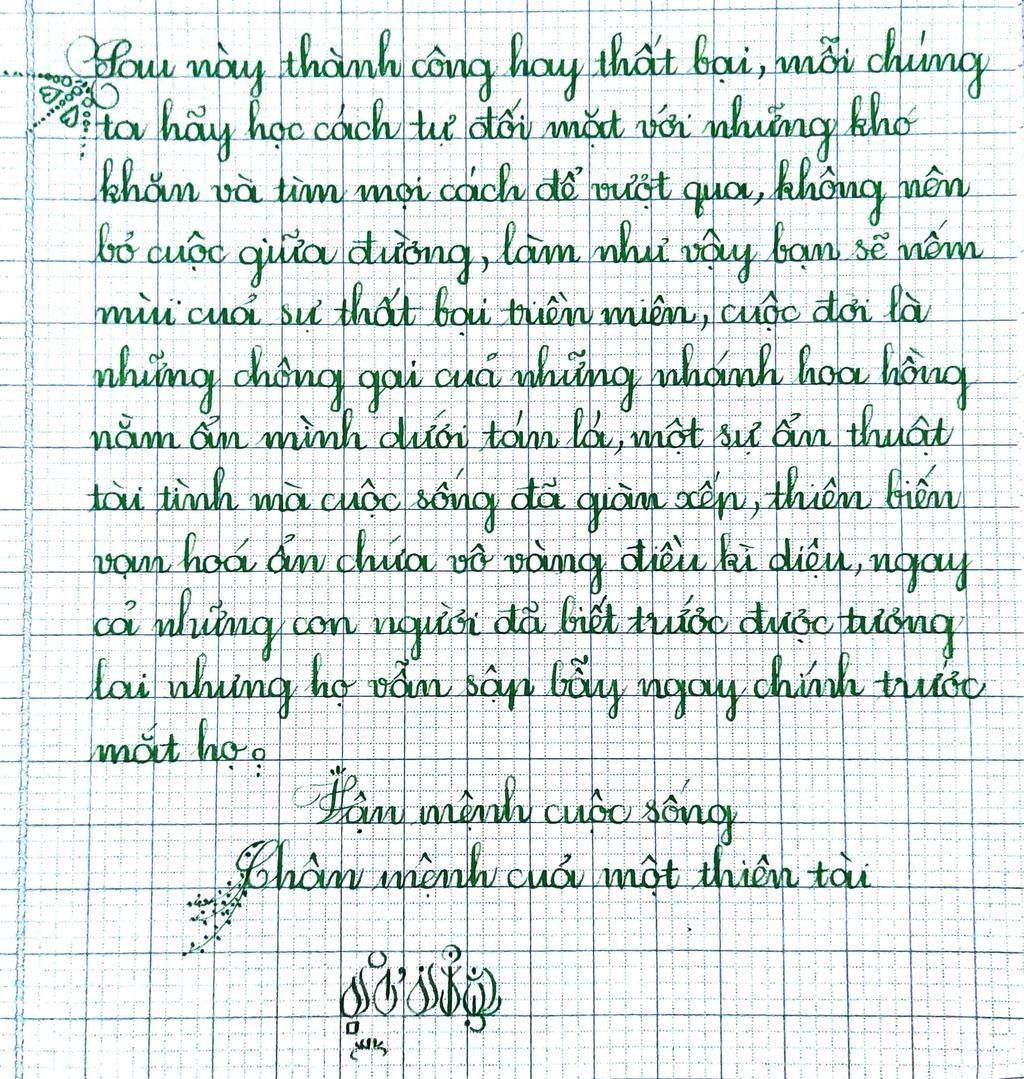 Sau này thành công hay thất bại, mỗi chúng
ta hãy học cách tự đối mặt với những khó
khăn và tìm mọi cách để vượt qua, không nên
bỏ cuộc giữa đường, làm như vậy bạn sẽ nếm
mùi cuả sự thất bại triền miên, cuộc đời là
những chông gai cuả những nhánh hoa hồng
nằm ẩn mình dưới tán lá, một sự ẩn thuật
tài tình mà cuộc sống đã giàn xếp, thiên biến
vạn hoá ẩn chứa vô vàng điều kì diệu, ngay
cả những con người đã biết trước được tương
lai nhưng họ vẫn sập bẫy ngay chính trước
mắt họ.
Vận mệnh cuộc sống
Chân mệnh cuả một thiên tài